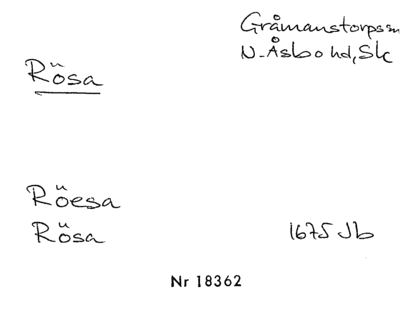 Gråmanstorps sn
N. Åsbo hd, Sk
Rösa
Röesa
Rösa 1675 Jb
Nr 18362